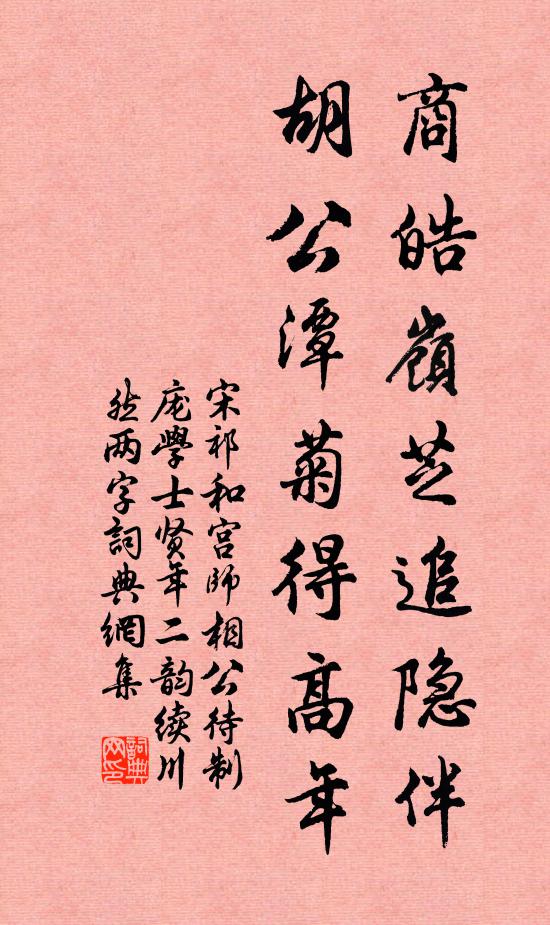 商皓嶺芝追隐伴
胡公潭菊得高年
宋祁和宫師相公待制
庞學士贤年二韵续川
然两字詞典網集
詞典网印